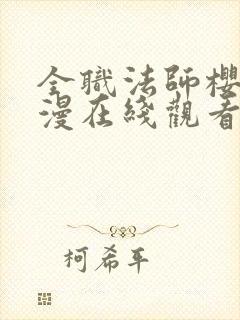 全職法師櫻
漫在綫觀看
柯希平